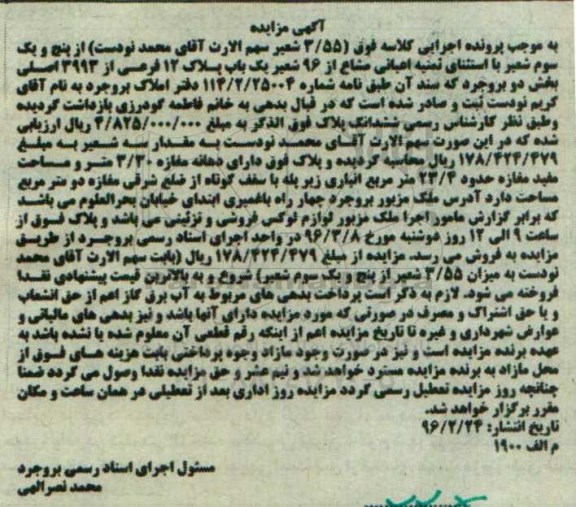 آگهی مزایده
به موجب پرونده اجرایی کلاسه فوق (۳/۵۵ شعیر سهم الارث آقای محمد نودست) از پنج و یک
سوم شعیر با استثنای ثمنیه اعیانی مشاع از ۹۶ شعیر یک باب پلاک ۱۲ فرعی از ۳۹۹۳ اصلی
بخش دو بروجرد که سند آن طبق نامه شماره ۱۱۴/۲/۲۵۰۰۴ دفتر املاک بروجرد به نام آقای
کریم نودست ثبت و صادر شده است که در قبال بدهی به خانم فاطمه گودرزی بازداشت گردیده
وطبق نظر کارشناس رسمی ششدانگ پلاک فوق الذکر به مبلغ ۴/۸۲۵/۰۰۰/۰۰۰ ریال ارزیابی
شده که در این صورت سهم الارث آقای محمد نودست به مقدار سه شعیر به مبلغ
۱۷۸/۴۲۴/۴۷۹ ریال محاسبه گردیده و پلاک فوق دارای دهانه مغازه ۳/۳۰ متر و مساحت
مفید مغازه حدود ۲۳/۴ متر مربع انباری زیر پله با سقف کوتاه از ضلع شرقی مغازه دو متر مربع
مساحت دارد آدرس ملک مزبور بروجرد چهار راه باغمیری ابتدای خیابان بحرالعلوم می باشد
که برابر گزارش مامور اجرا ملک مزبور لوازم لوکس فروشی و تزئینی می باشد و پلاک فوق از
ساعت ۹ الی ۱۲ روز دوشنبه مورخ ۹۶/۳/۸ در واحد اجرای اسناد رسمی بروجرد از طریق
مزایده به فروش می رسد. مزایده از مبلغ ۱۷۸/۴۲۴/۴۷۹ ریال (بابت سهم الارث آقای محمد
نودست به میزان ۳/۵۵ شعیر از پنج و یک سوم شعیر) شروع و به بالاترین قیمت پیشنهادی نقدا
فروخته می شود. لازم به ذکر است پرداخت بدهی های مربوط به آب برق گاز اعم از حق انشعاب
و یا حق اشتراک و مصرف در صورتی که مورد مزایده دارای آنها باشد و نیز بدهی های مالیاتی و
عوارض شهرداری و غیره تا تاریخ مزایده اعم از اینکه رقم قطعی آن معلوم شده یا نشده باشد به
عهده برنده مزایده است و نیز در صورت وجود مازاد وجوه پرداختی بابت هزینه های فوق از
محل مازاد به برنده مزایده مسترد خواهد شد و نیم عشر و حق مزایده نقدا وصول می گردد ضمنا
چنانچه روز مزایده تعطیل رسمی گردد مزایده روز اداری بعد از تعطیلی در همان ساعت و مکان
مقرر برگزار خواهد شد.
تاریخ انتشار: ۹۶/۲/۲۴
م الف ۱۹۰۰
مسئول اجرای اسناد رسمی بروجرد
محمد نصرالهی